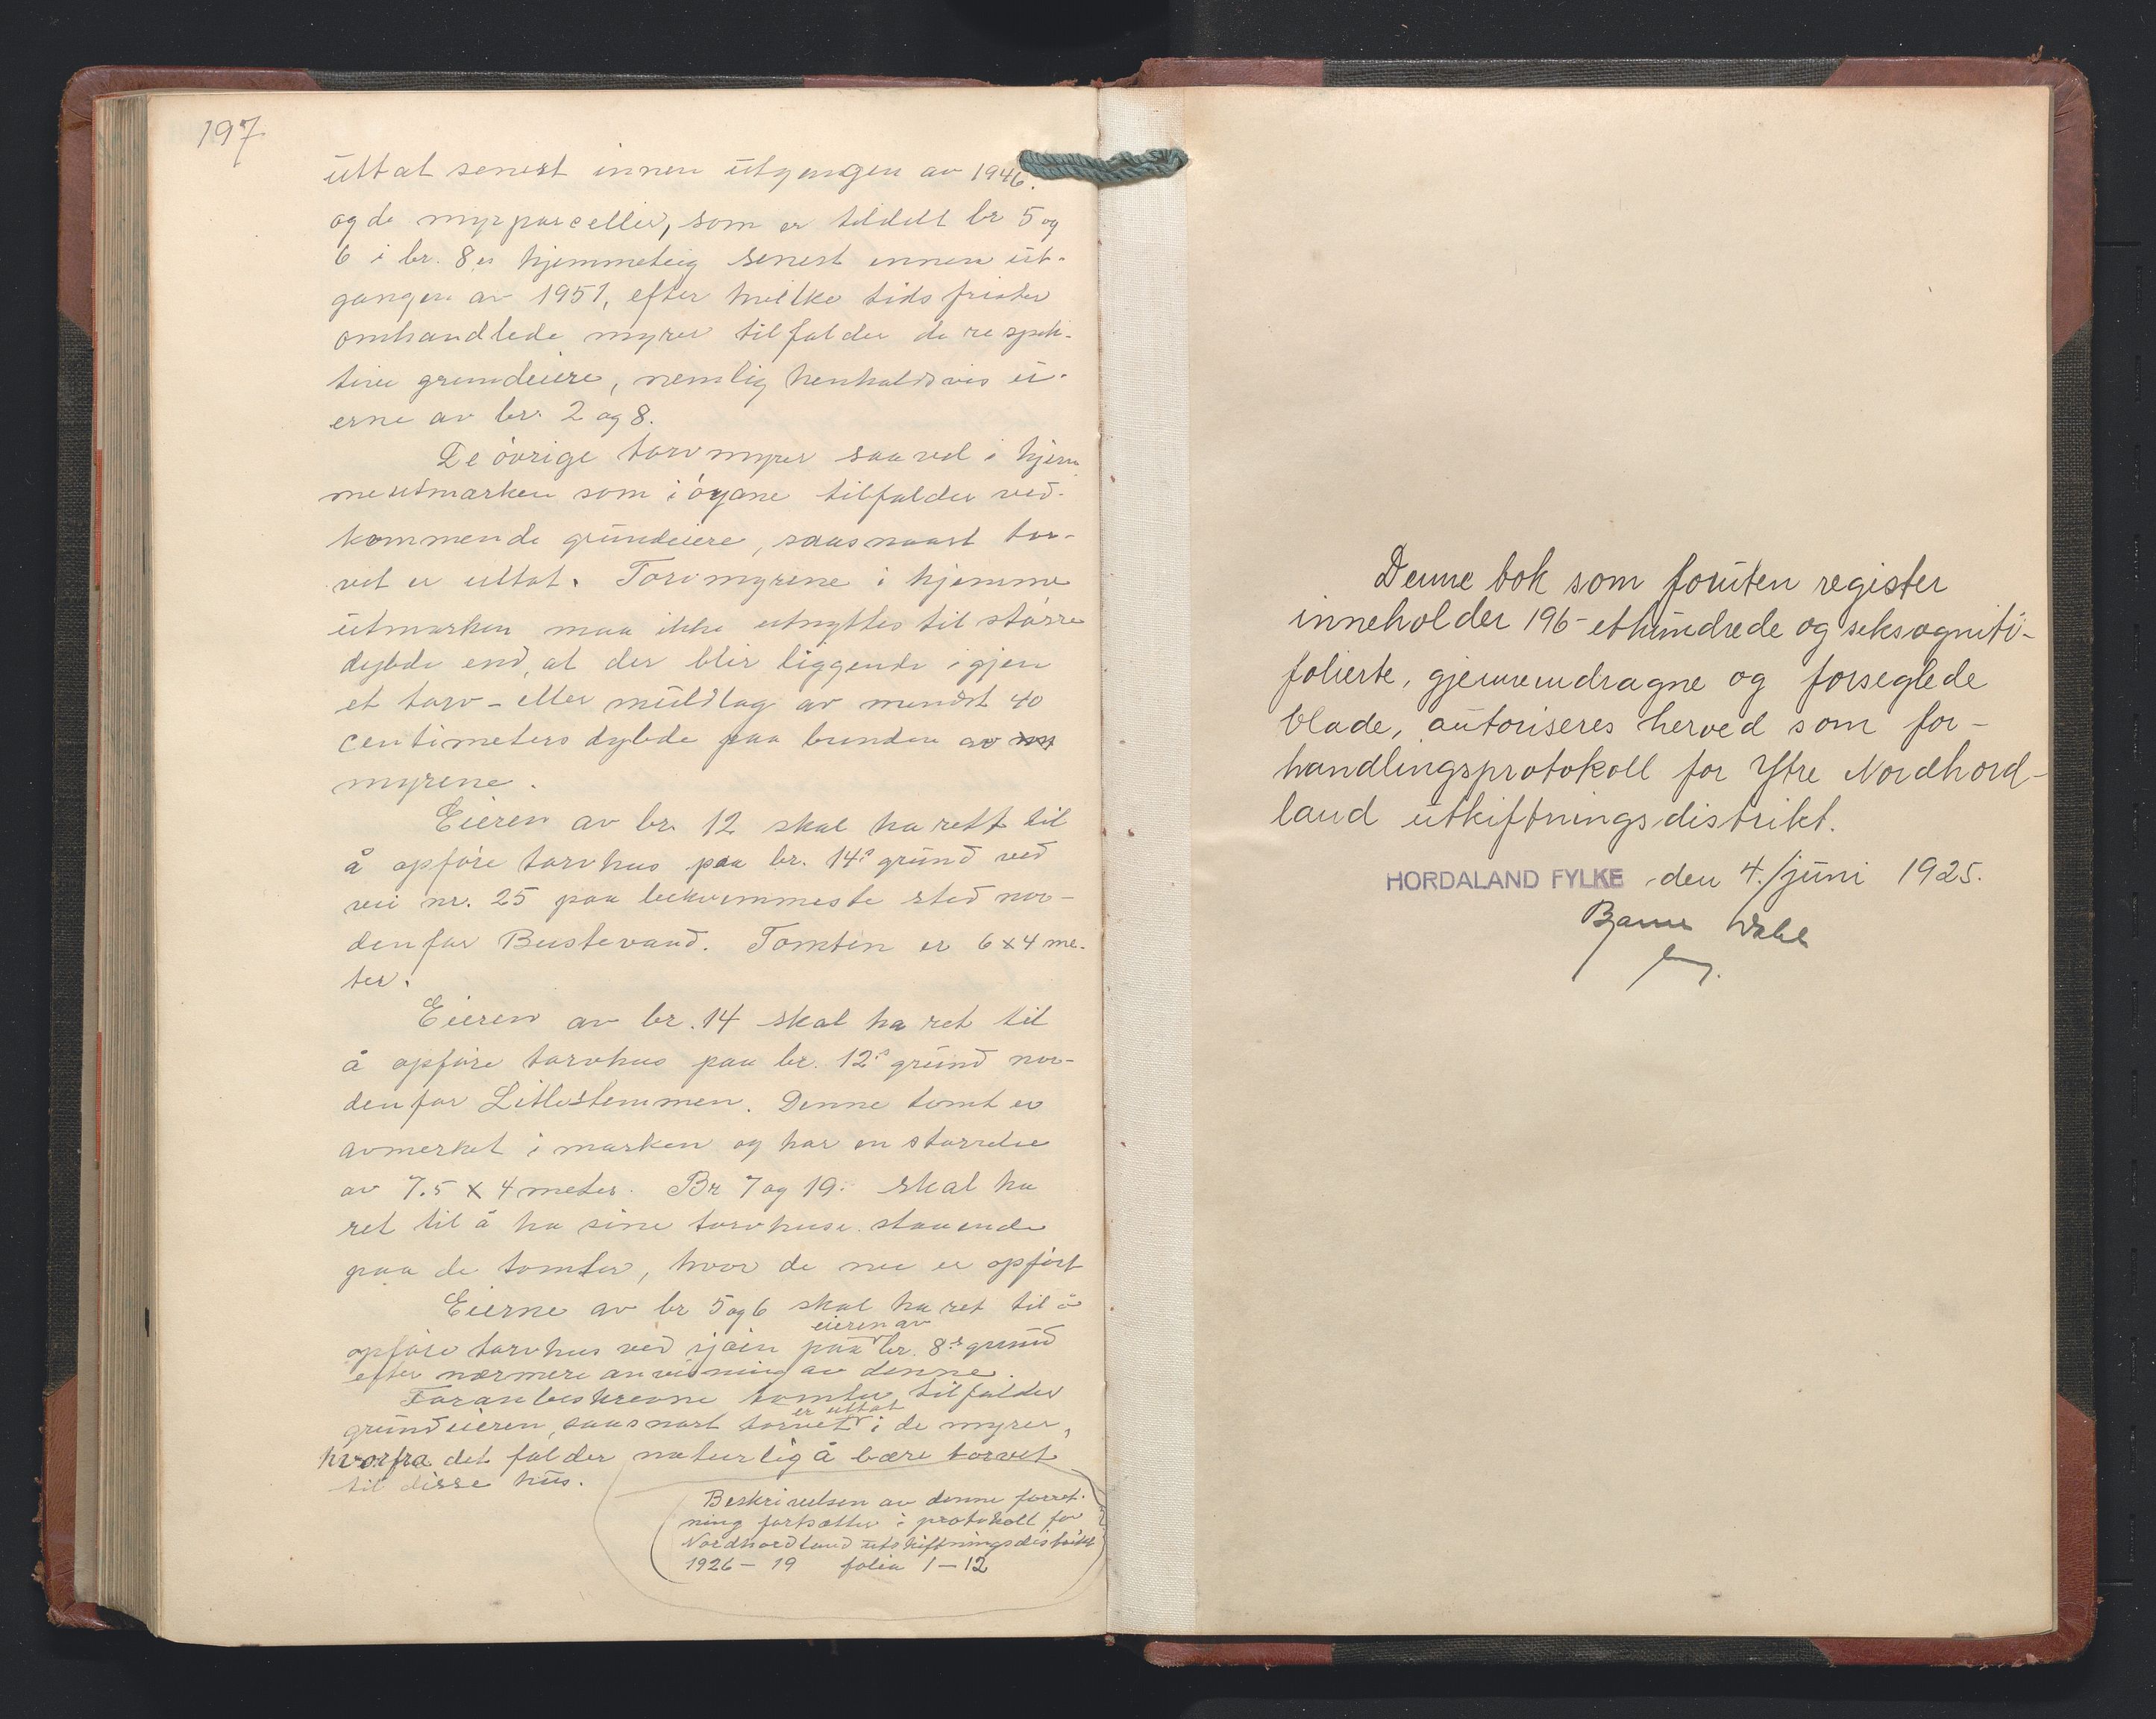 197
uttat senest innen utgangen av 1946.
og de myrparceller, som er tildelt br 5 og
6 i br. 8s hjemmeteig senest innen ut-
gangen av 1951, efter hvilke tidsfrister
omhandlede myrer tilfalder de respek-
tive grundeiere, nemlig henholdsvis ei-
erne av br. 2 og 8.
De øvrige torvmyrer saavel i hjem
meutmarken som i øyane tilfalder ved-
kommende grundeiere, saasnaart tor-
vet er uttat. Torvmyrene i hjemme
utmarken maa ikke utnyttes til større
dybde end, at der blir liggende igjen
et torv- eller muldlag av mindst 40
centimeters dybde paa bunden av
myrene.
Eieren av br. 12 skal ha rett til
å opføre torvhus paa br. 14s grund ved
vei nr. 25 paa bekvemmeste sted nor-
denfor Bustevand. Tomten er 6x4 me-
ter.
Eieren av br. 14 skal ha ret til
å opføre torvhus paa br. 12s grund nor-
denfor Litlestemmen. Denne tomt er
avmerket i marken og har en størrelse
av 7.5 x 4 meter. Br 7 og 19. skal ha
ret til å ha sine torvhuse staaende
paa de tomter, hvor de nu er opført
Eierne av br 5 og 6 skal ha ret til å
eieren av
opføre torvhus ved sjøen paa br. 8s grund
efter nærmere anvisning av denne.
Foranbeskrevne tomter tilfalder
er uttat
grundeieren, saasnart torvet i de myrer,
hvorfra det falder naturlig å bære torvet
til disse hus.
Beskrivelsen av denne forret-
ning fortsætter i protokoll for
Nordhordland utskiftningsdistrikt
1926 - 19 folia 1 - 12
Denne bok som foruten register
inneholder 196 - ethundrede og seksogniti -
folierte, gjennemdragne og forseglede
blade, autoriseres herved som for-
handlingsprotokoll for Ytre Nordhord-
land utkiftningsdistrikt.
HORDALAND FYLKE den 4./juni 1925.